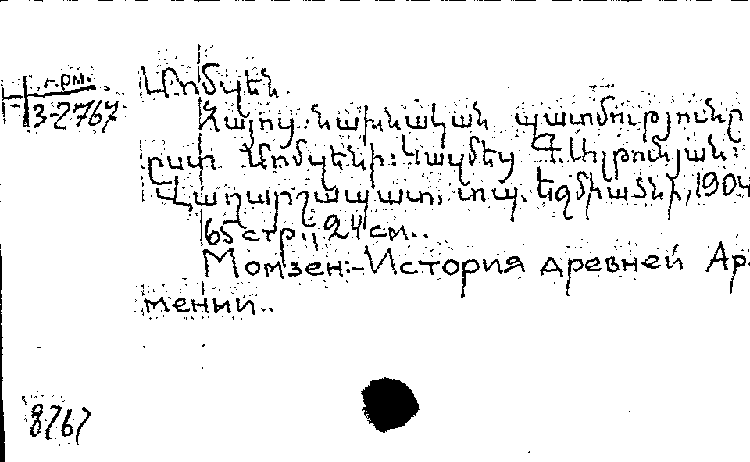 г.рм.
3-2767
Մոմզեն.
Հայոց նախնական պատմութիւնը
ըստ Մոմզենի: Կազմեց
Վաղարշապատ, տպ. Էջմիածնի, 1904
65 стр., 24 см..
Момзен:-История древней Ар-
мении..
8767